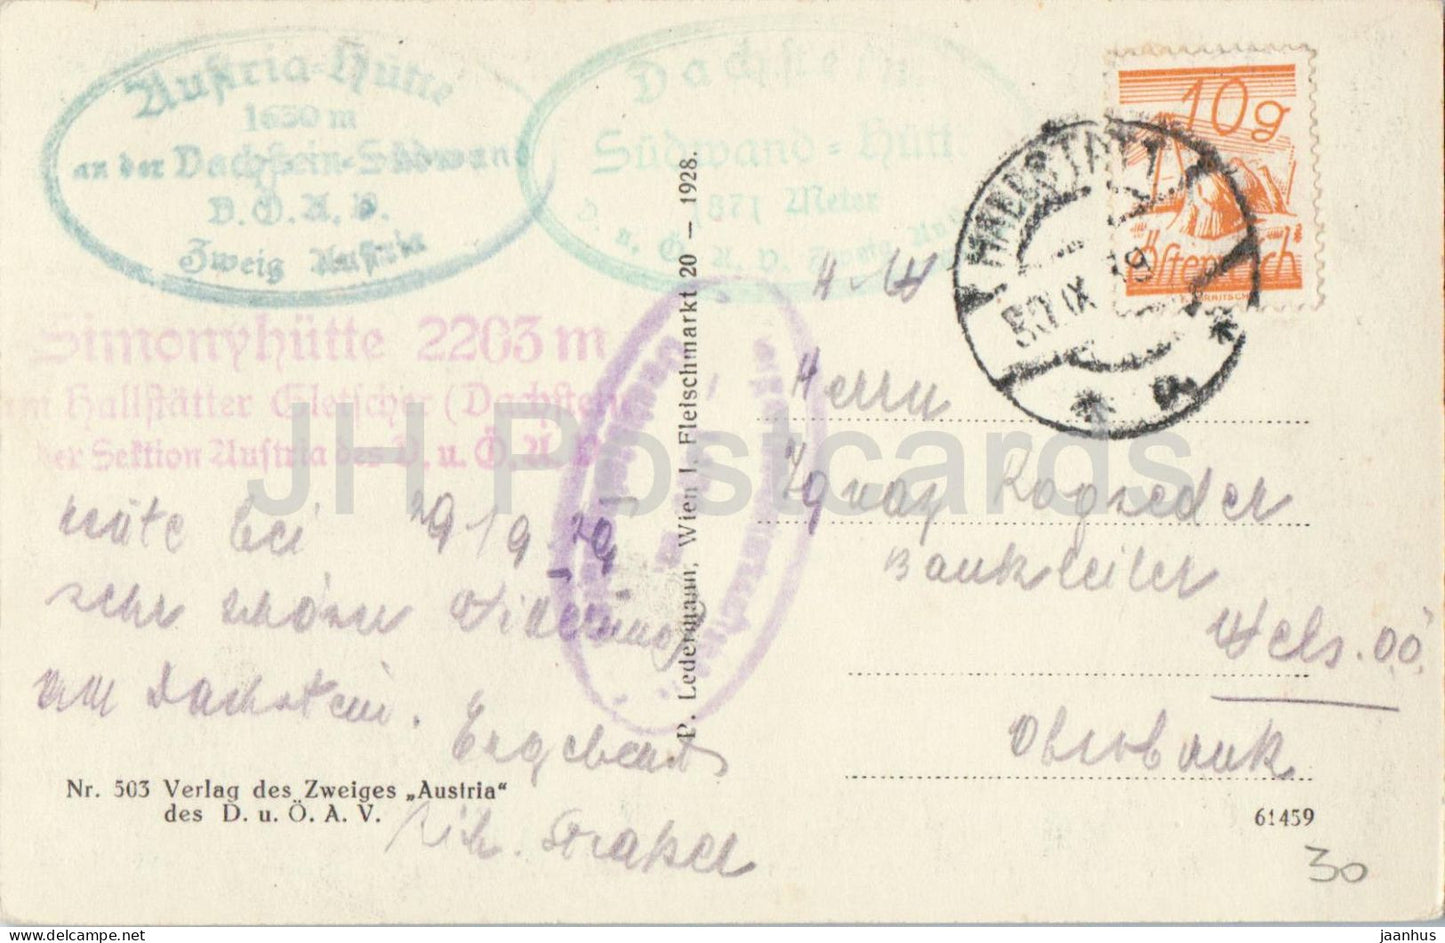 Austria-Hütte
1630 m
an der Dachstein-Südwand
D.Ö.A.V.
Zweig Austria
Dachstein
Südwand-Hütte
1871 Meter
D. u. Ö. A. V. Zweig Aust
Simonyhütte 2203 m
am Hallstätter Gletscher (Dachstein)
der Sektion Austria des D. u. Ö. A. V.
10g
Österreich
HALLSTATT
30 IX
* a *
P. Ledermann, Wien I, Fleischmarkt 20 — 1928.
Herrn
Ignaz Rogseder
Bankleiter
Wels. O.Ö.
Oberbank
heute bei 29/9 29
sehr schönen Witterung
am Dachstein.
Ergebenst
Nr. 503 Verlag des Zweiges „Austria“
des D. u. Ö. A. V.
61459
30
JH Postcards
www.delcampe.net
jaanhus